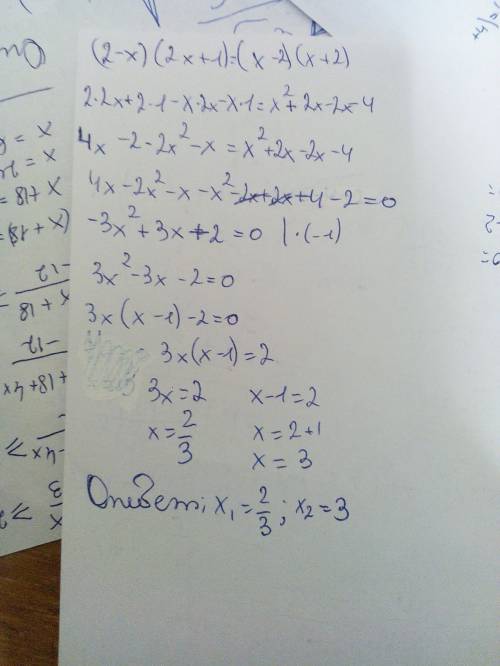 (2-x)(2x+1)=(x-2)(x+2)
2·2x+2·1-x·2x-x·1=x²+2x-2x-4
4x-2-2x²-x=x²+2x-2x-4
4x-2x²-x-x²-2x+2x+4-2=0
-3x²+3x+2=0 |·(-1)
3x²-3x-2=0
3x(x-1)-2=0
3x(x-1)=2
3x=2 x-1=2
x=2/3 x=2+1
x=3
Ответ: x₁=2/3; x₂=3
x+18
-12
x+18
-12
+18+4x
-4x≥
x/3 ≥